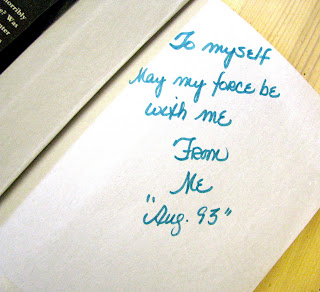 horribly
me? Was
nter
To myself
May my force be
with me
From
Me
"Aug. 93"